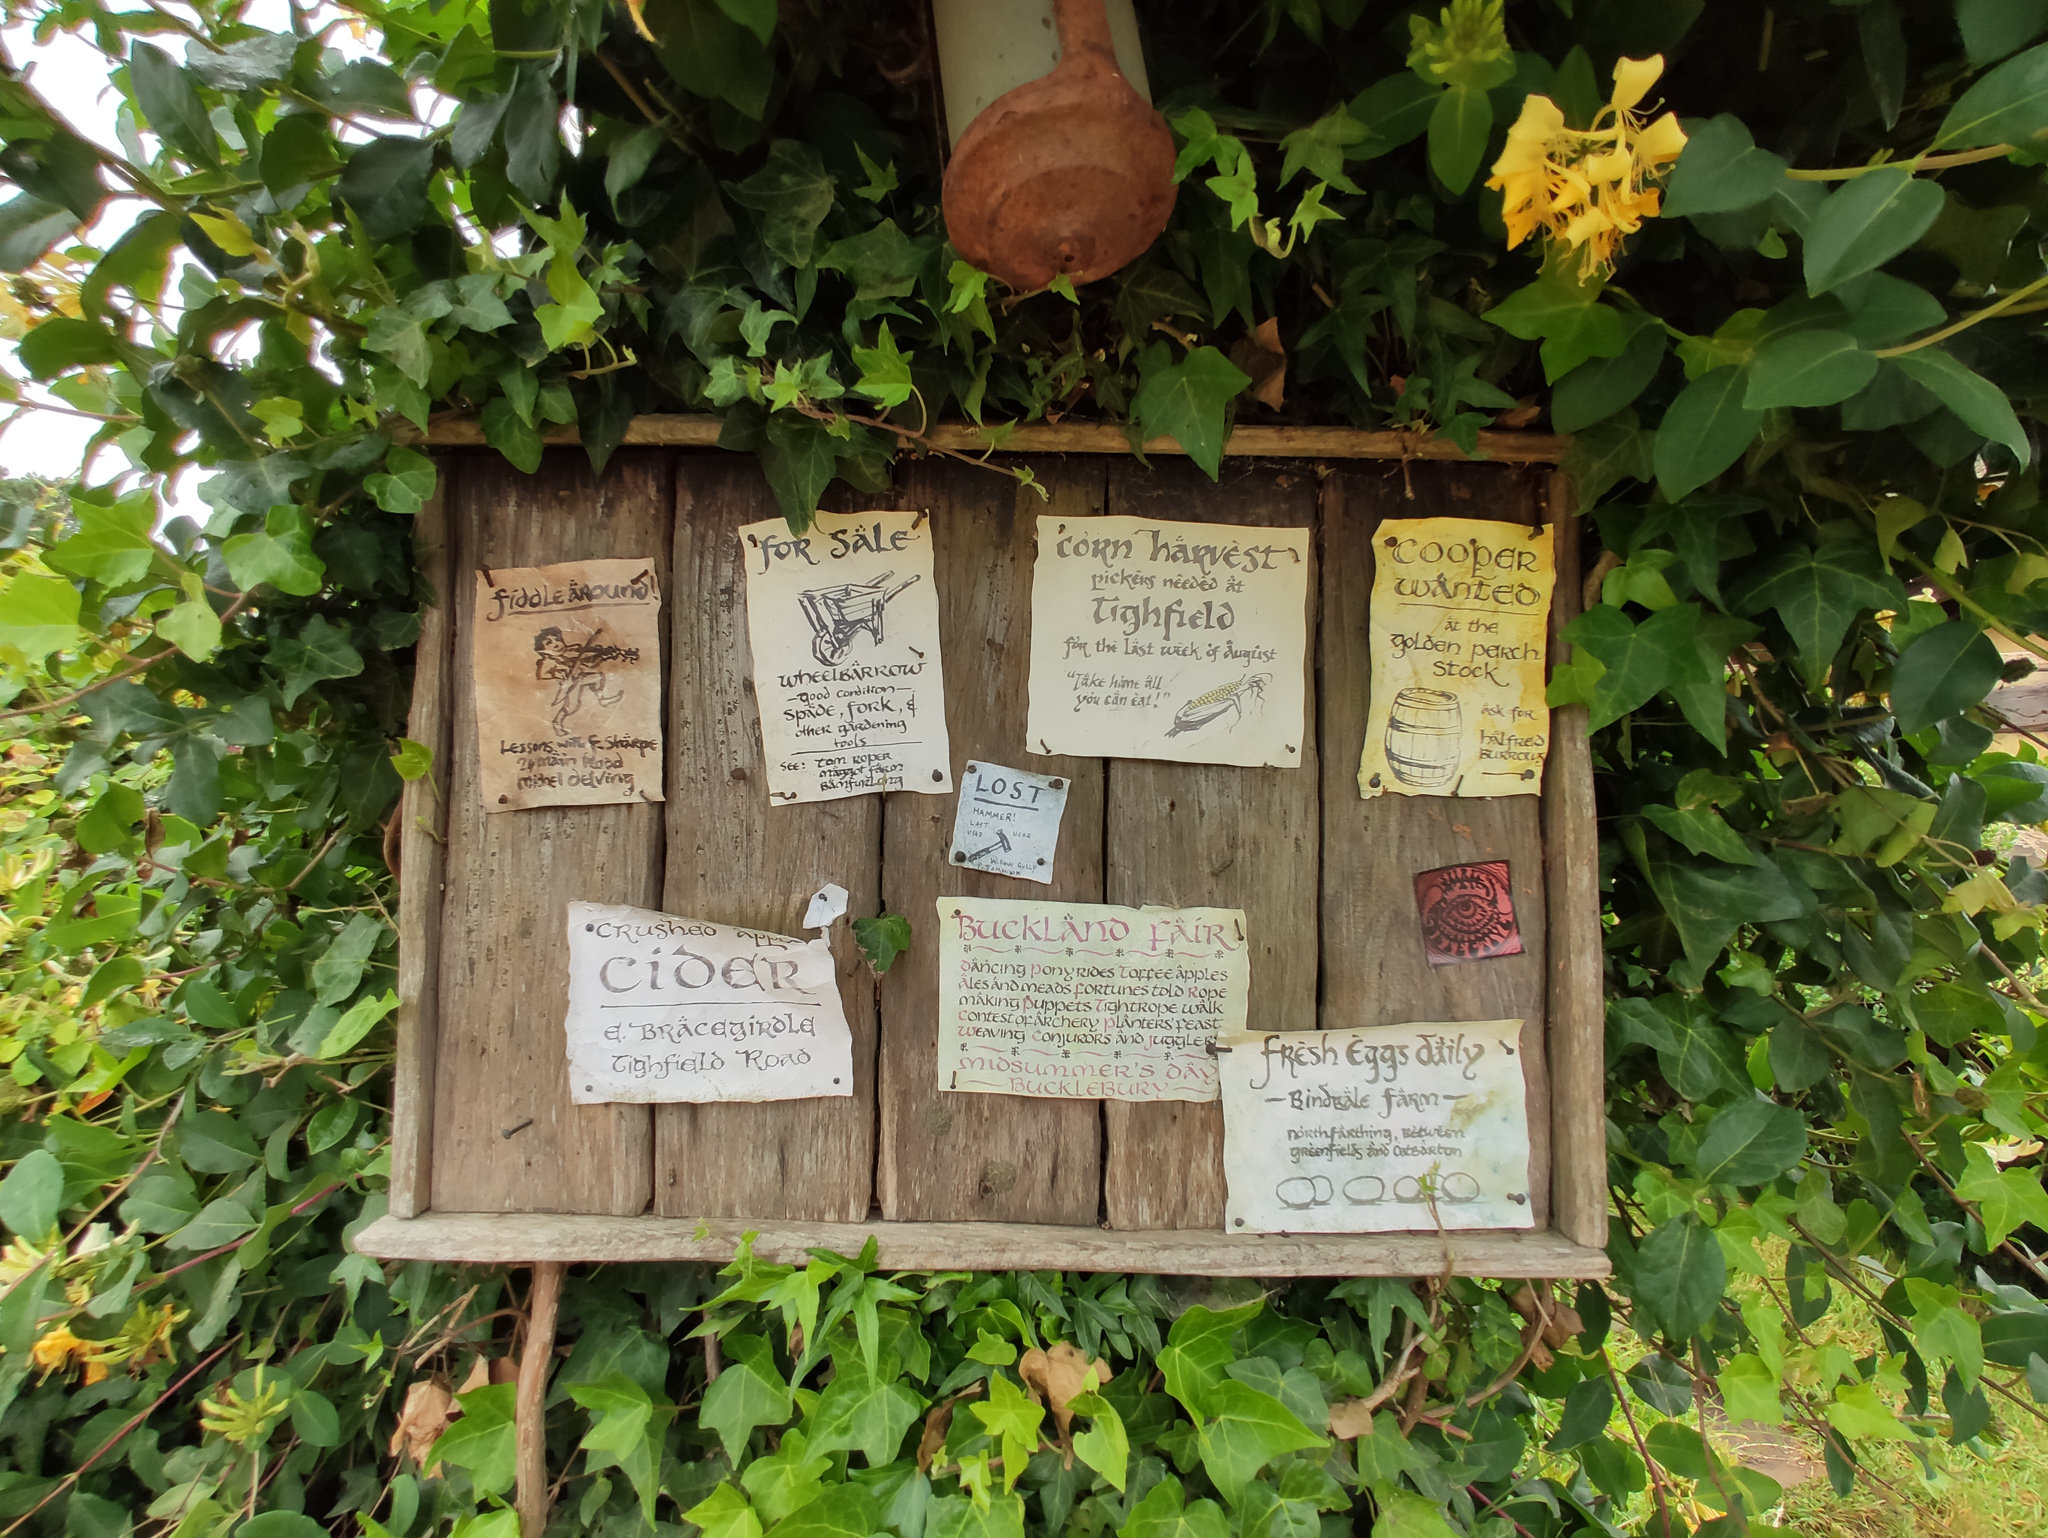 Fiddle around!
Lessons with F. Sharpe
24 Main Road
Michel Delving
For Sale
Wheelbarrow
— good condition —
Spade, fork, &
other gardening
tools
See: Tom Roper
Maggot Farm
Bamfurlong
Corn Harvest
pickers needed at
Tighfield
for the last week of August
"Take home all
you can eat!"
Cooper
Wanted
at the
Golden Perch
Stock
ask for
Halfred
Burrows
LOST
HAMMER!
LAST
USED NEAR
WILLOW GULLY
Crushed
Cider
E. Bracegirdle
Tighfield Road
Buckland Fair
Dancing Pony rides Toffee apples
Ales and meads Fortunes told Rope
making Puppets Tightrope walk
Contest of Archery Planters' feast
Weaving Conjurors and jugglers
Midsummer's Day
Bucklebury
Fresh Eggs daily
— Bindbale Farm —
Northfarthing, between
Greenfields and Oatbarton